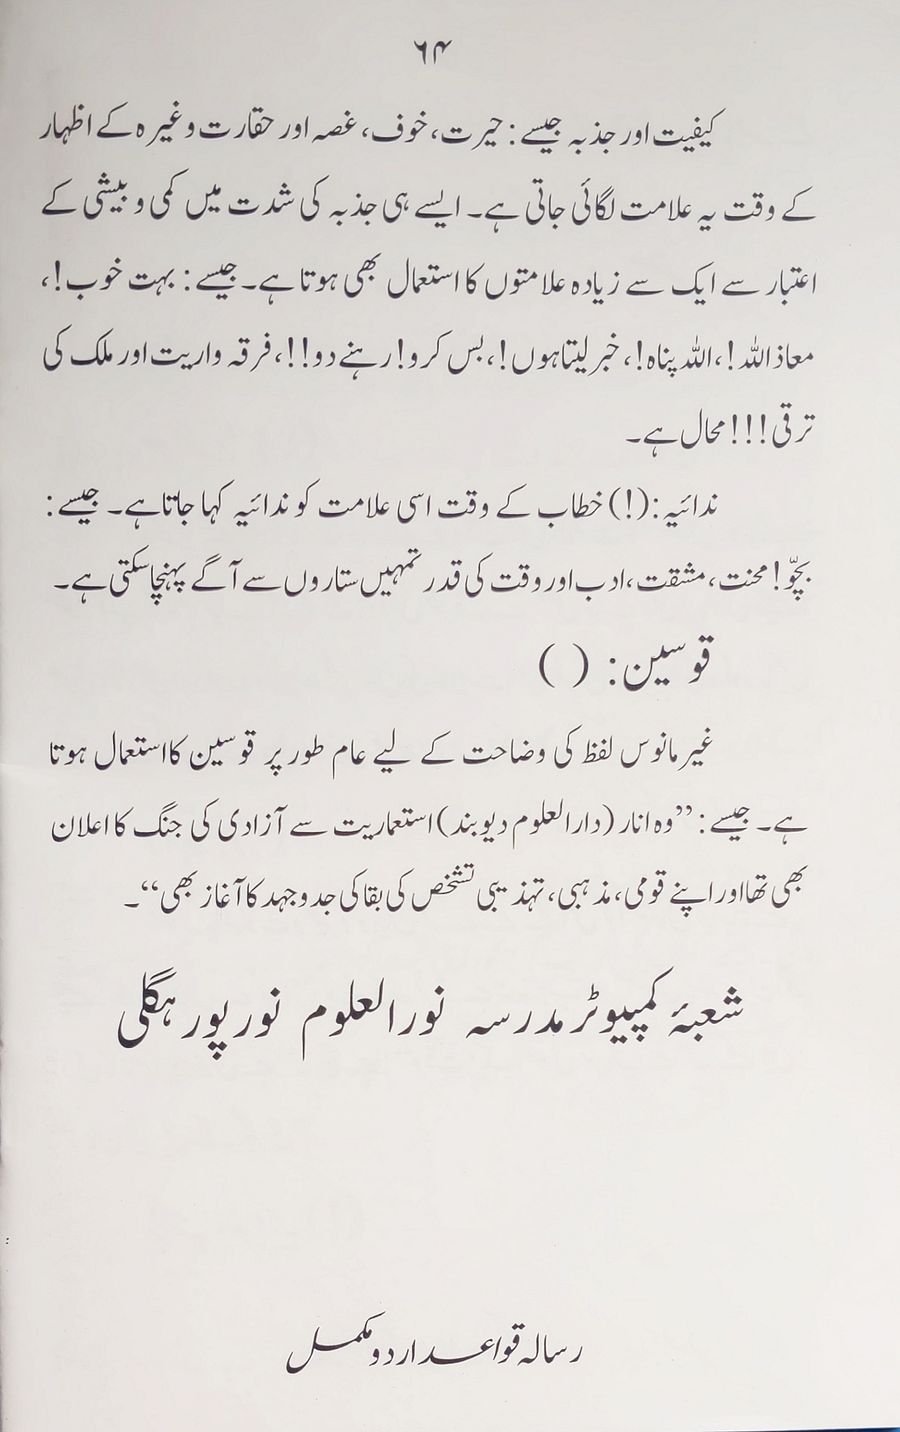 ۶۴
کیفیت اور جذبہ جیسے: حیرت، خوف، غصہ اور حقارت وغیرہ کے اظہار
کے وقت یہ علامت لگائی جاتی ہے۔ ایسے ہی جذبہ کی شدت میں کمی و بیشی کے
اعتبار سے ایک سے زیادہ علامتوں کا استعمال بھی ہوتا ہے۔ جیسے: بہت خوب!،
معاذ اللہ!، اللہ پناہ!، خبر لیتا ہوں!، بس کرو! رہنے دو!!، فرقہ واریت اور ملک کی
ترقی!!! محال ہے۔
ندائیہ: (!) خطاب کے وقت اسی علامت کو ندائیہ کہا جاتا ہے۔ جیسے:
بچّو! محنت، مشقت، ادب اور وقت کی قدر تمہیں ستاروں سے آگے پہنچا سکتی ہے۔
قوسین: ( )
غیر مانوس لفظ کی وضاحت کے لیے عام طور پر قوسین کا استعمال ہوتا
ہے۔ جیسے: ”وہ انار (دارالعلوم دیوبند) استعماریت سے آزادی کی جنگ کا اعلان
بھی تھا اور اپنے قومی، مذہبی، تہذیبی تشخص کی بقا کی جدوجہد کا آغاز بھی“۔
شعبۂ کمپیوٹر مدرسہ نورالعلوم نورپور ہگلی
رسالہ قواعد اردو مکمل